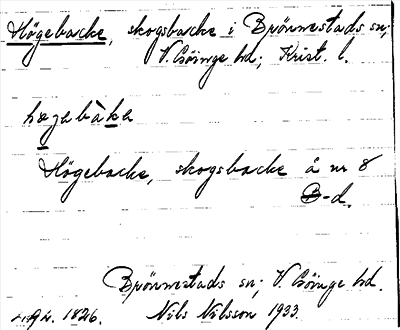 Högebacke, skogsbacke i Brönnestads sn;
V. Göinge hd; Krist. l.
høgebàka
Högebacke, skogsbacke å nr 8
B-d.
Brönnestads sn; V. Göinge hd.
1826. Nils Nilsson 1933.